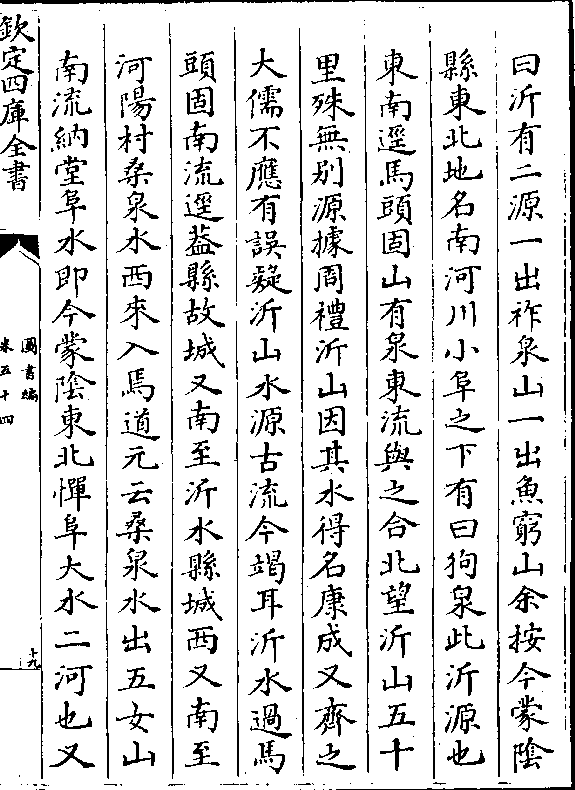 曰沂有二源一出祚泉山一出魚窮山余按今蒙陰
縣東北地名南河川小阜之下有曰狗泉此沂源也
東南逕馬頭固山有泉東流與之合北望沂山五十
里殊無别源據周禮沂山因其水得名康成又齊之
大儒不應有誤疑沂山水源古流今竭耳沂水過馬
頭固南流逕葢縣故城又南至沂水縣城西又南至
河陽村桑泉水西來入焉道元云桑泉水出五女山
南流納堂阜水即今蒙陰東北憚阜大水二河也又
欽定四庫全書
圖書編
卷五十四
十九